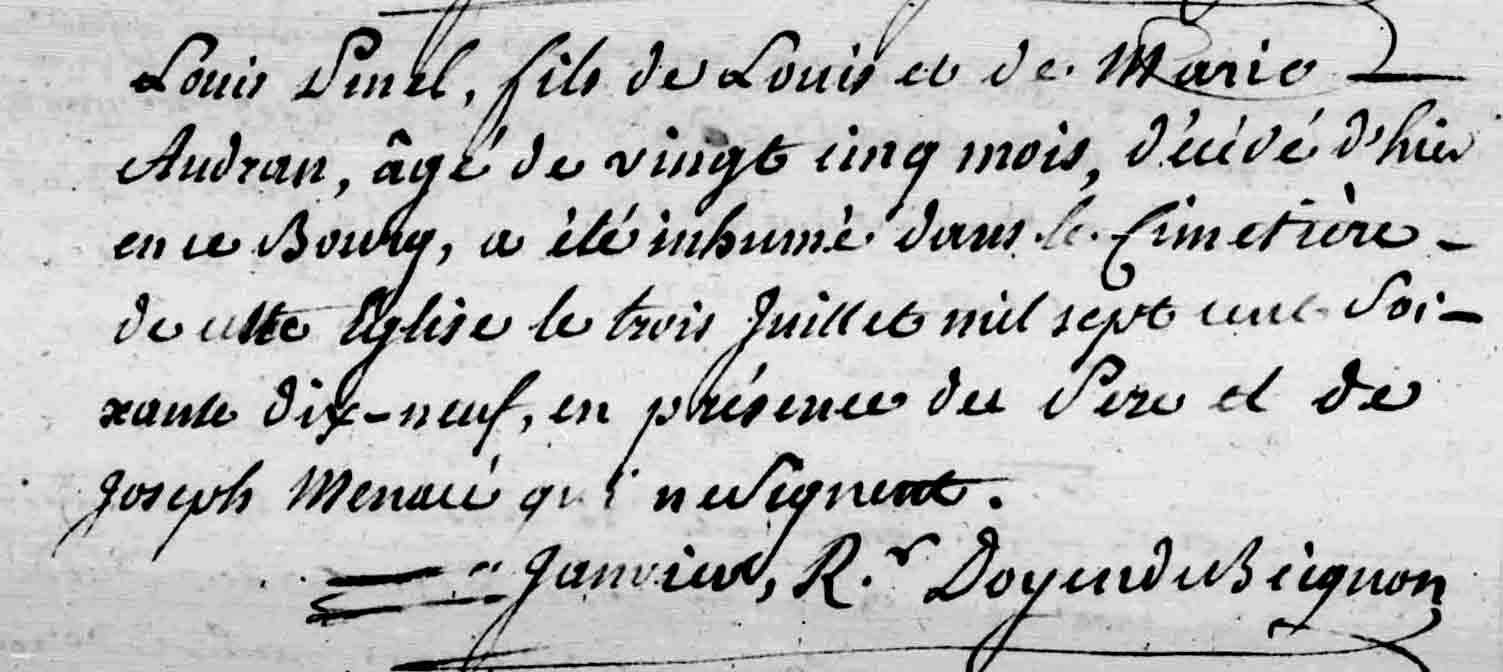 Louis Pinel, fils de Louis et de Marie
Audran, âgé de vingt cinq mois, décédé d'hier
en ce Bourg, a été inhumé dans le Cimetière
de cette Eglise le trois Juillet mil sept cent Soi-
xante dix-neuf, en présence du Pere et de
Joseph Menacé qui ne Signent.
Janvier, R.r Doyen du Beignon